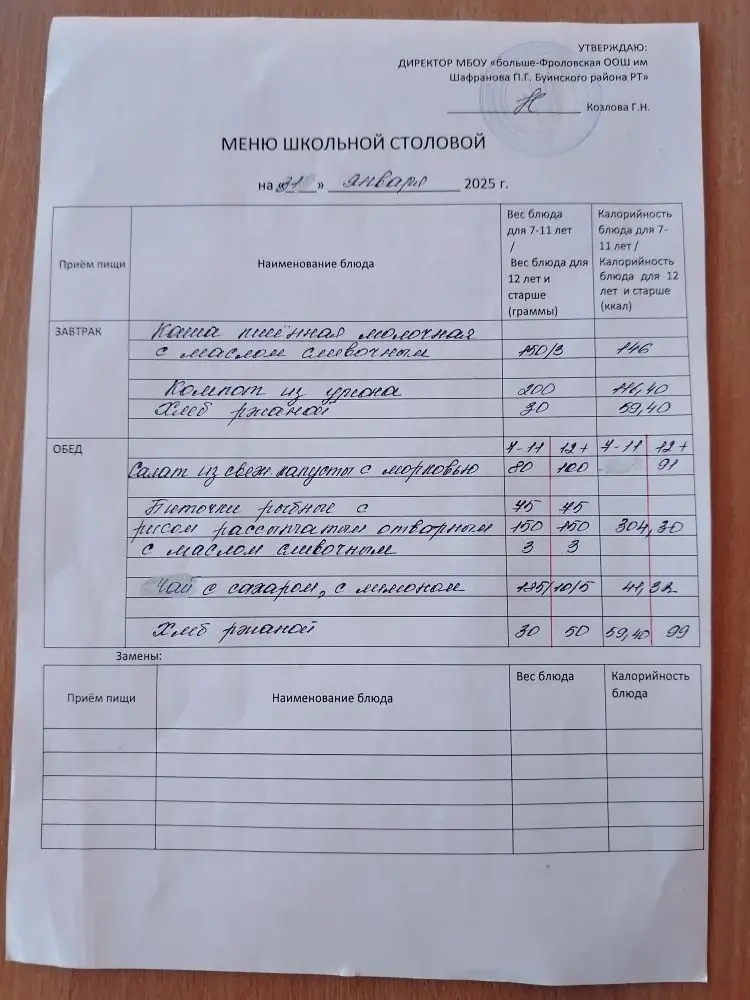 УТВЕРЖДАЮ:
ДИРЕКТОР МБОУ «больше-Фроловская ООШ им
Шафранова П.Г. Буинского района РТ»
Козлова Г.Н.
МЕНЮ ШКОЛЬНОЙ СТОЛОВОЙ
на «31» января 2025 г.
Приём пищи Наименование блюда Вес блюда для 7-11 лет / Вес блюда для 12 лет и старше (граммы) Калорийность блюда для 7-11 лет / Калорийность блюда для 12 лет и старше (ккал)
ЗАВТРАК Каша пшённая молочная
с маслом сливочным 150/3 146
Компот из урюка 200 116,40
Хлеб ржаной 30 59,40
ОБЕД 7-11 12+ 7-11 12+
Салат из свеж. капусты с морковью 80 100 91
Биточки рыбные с 75 75
рисом рассыпчатым отварным 150 150 304,30
с маслом сливочным 3 3
Чай с сахаром, с лимоном 185/10/5 41,32
Хлеб ржаной 30 50 59,40 99
Замены:
Приём пищи Наименование блюда Вес блюда Калорийность блюда